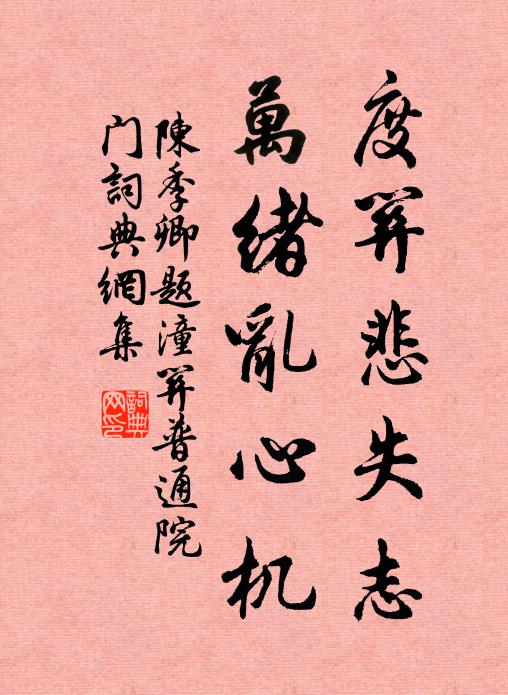 度関悲失志
萬緒亂心机
陳季卿题潼関普通院
门詞典網集
詞典网印